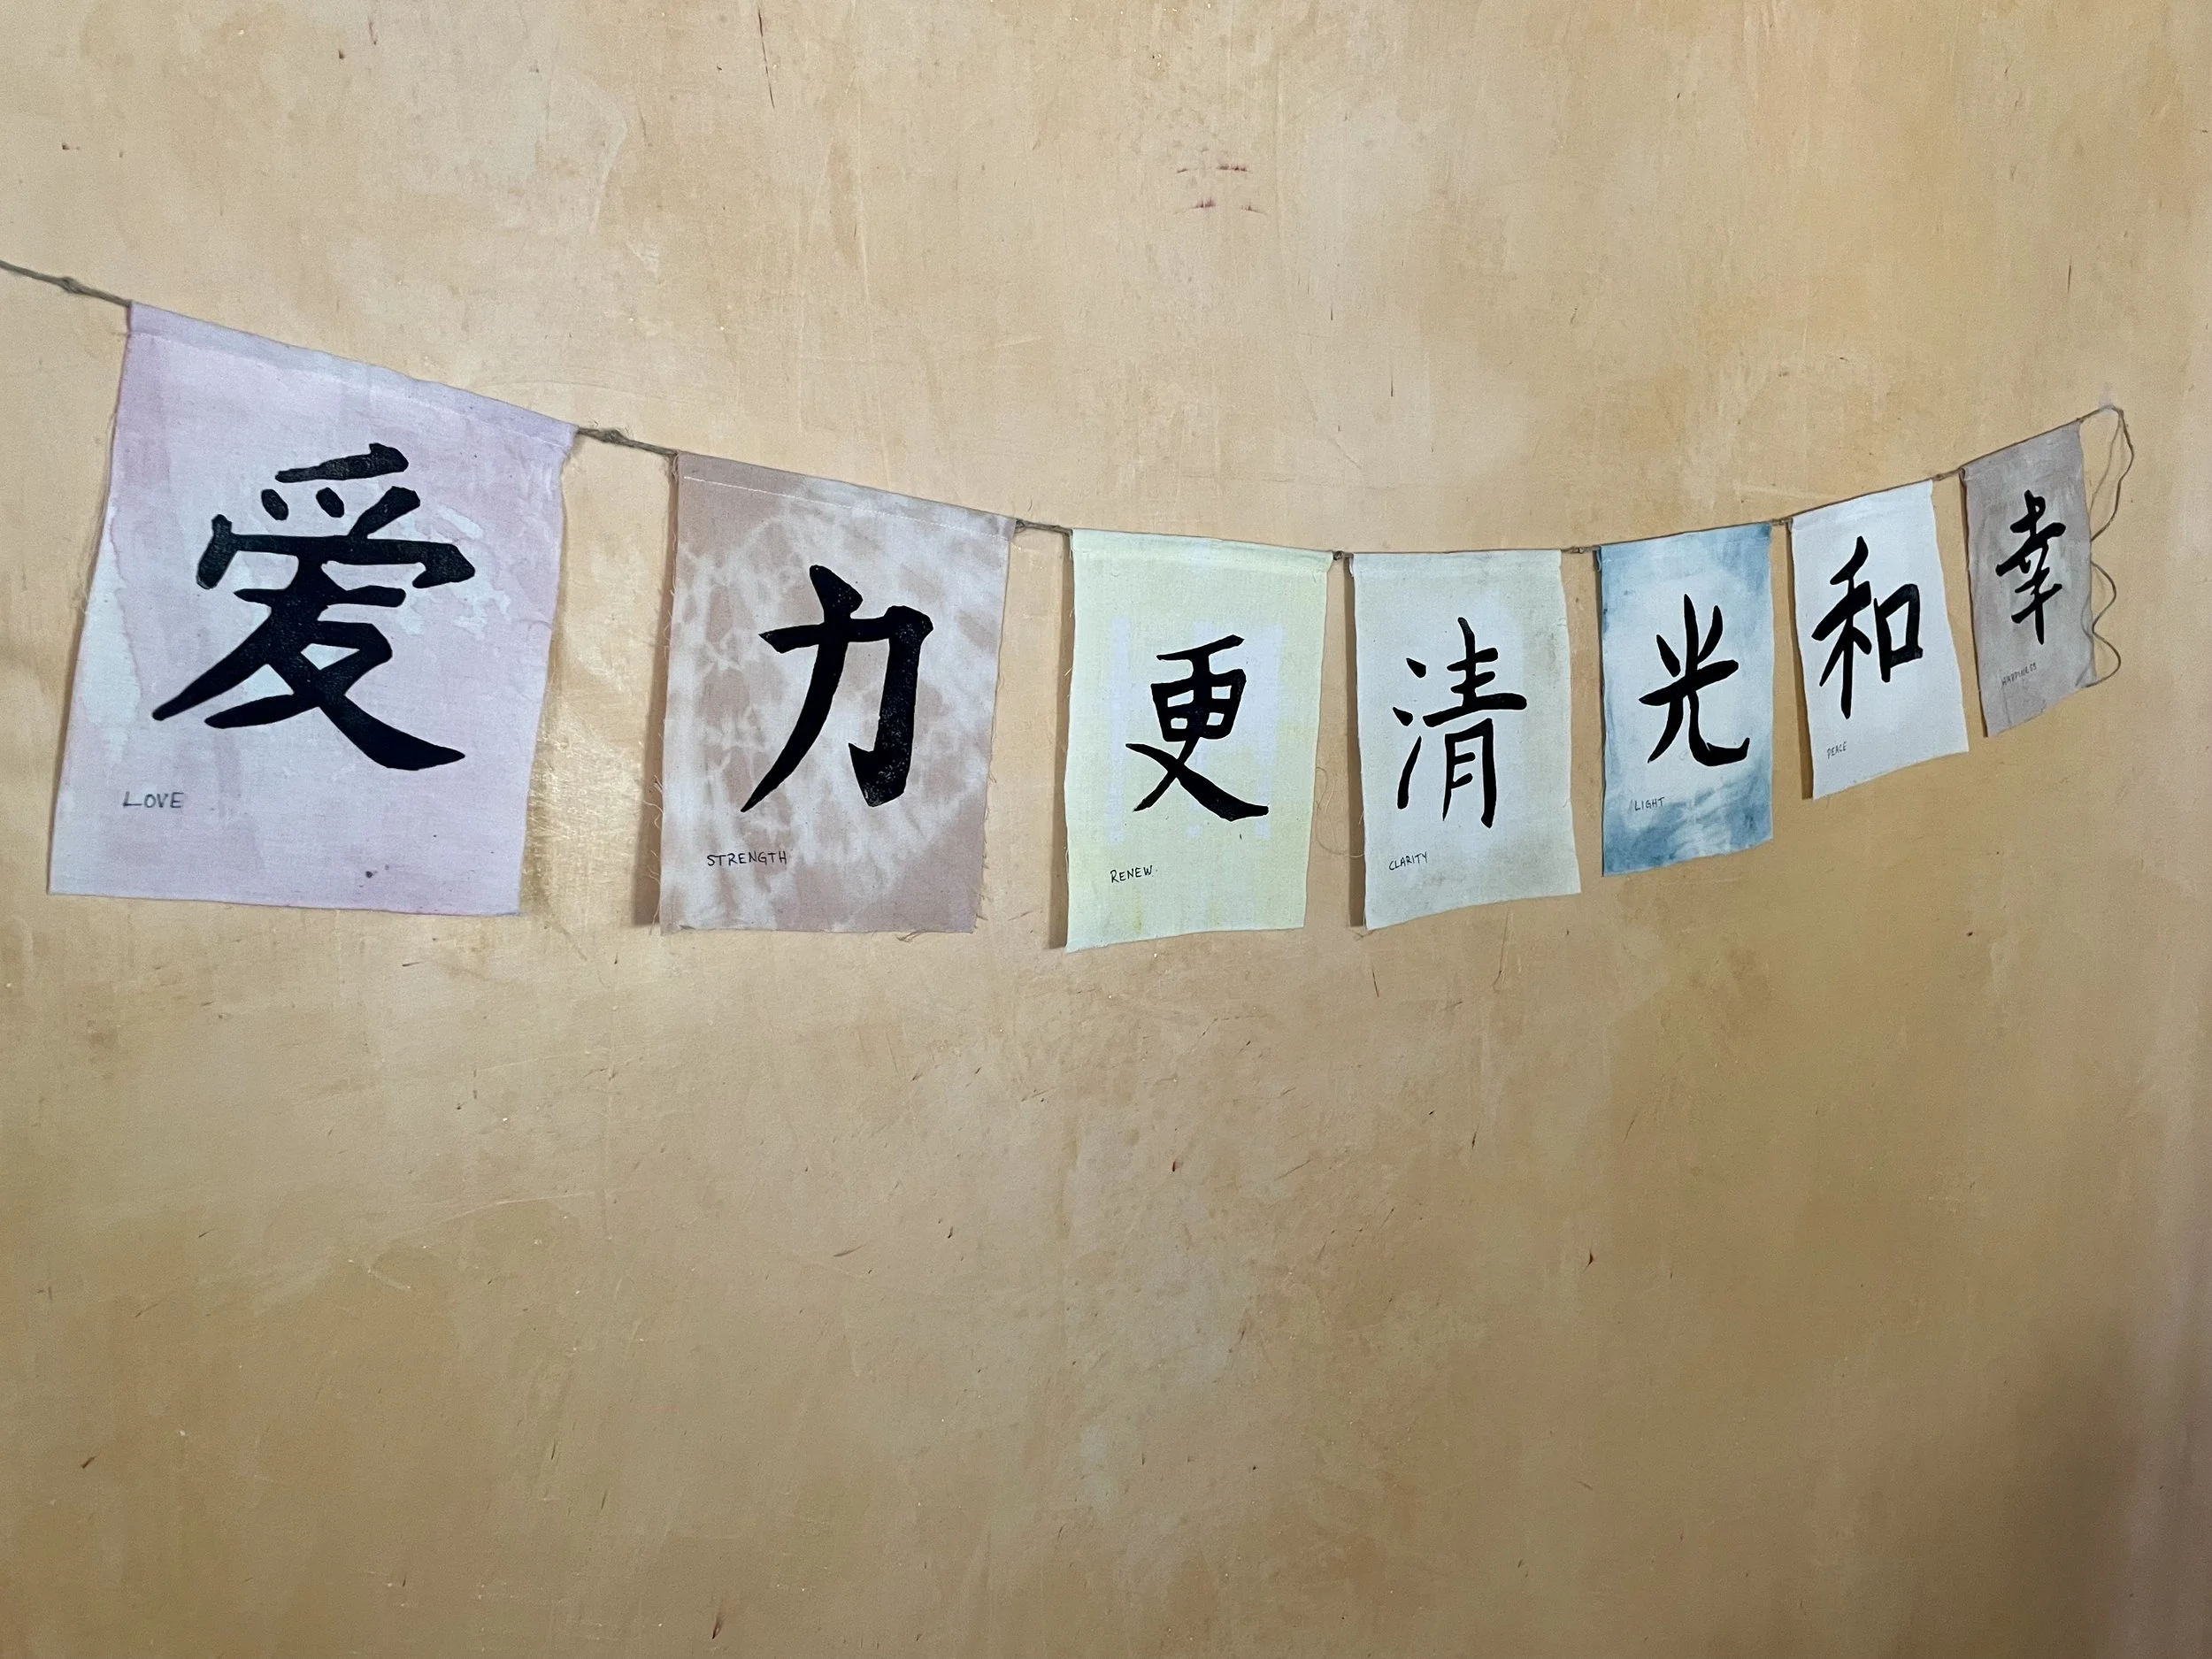 爱
LOVE
力
STRENGTH
更
RENEW
清
CLARITY
光
LIGHT
和
PEACE
幸
HAPPINESS